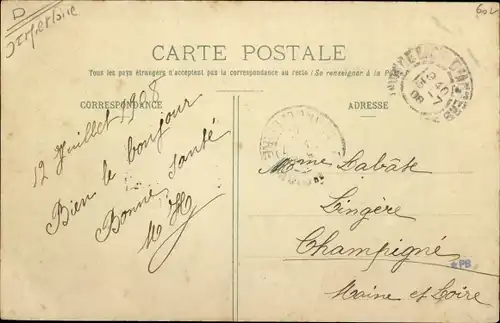 CARTE POSTALE
Tous les pays étrangers n'acceptent pas la correspondance au recto (Se renseigner à la Poste)
CORRESPONDANCE
ADRESSE
12 Juillet 1908
Bien le bonjour
Bonne Santé
M H
Mme Labâte
Lingère
Champigné
Maine et Loire
PB